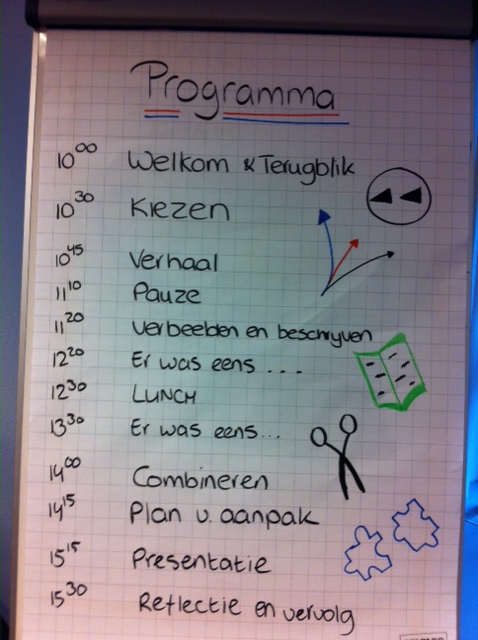 Programma
10 00 Welkom & Terugblik
10 30 Kiezen
10 45 Verhaal
11 10 Pauze
11 20 Verbeelden en beschrijven
12 20 Er was eens ...
12 30 LUNCH
13 30 Er was eens...
14 00 Combineren
14 15 Plan v. aanpak
15 15 Presentatie
15 30 Reflectie en vervolg